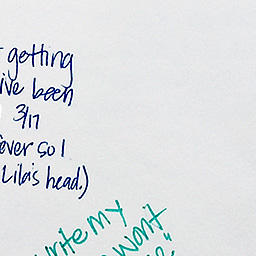 getting
i've been
3/17
ever so I
Lila's head.)
write my
won't